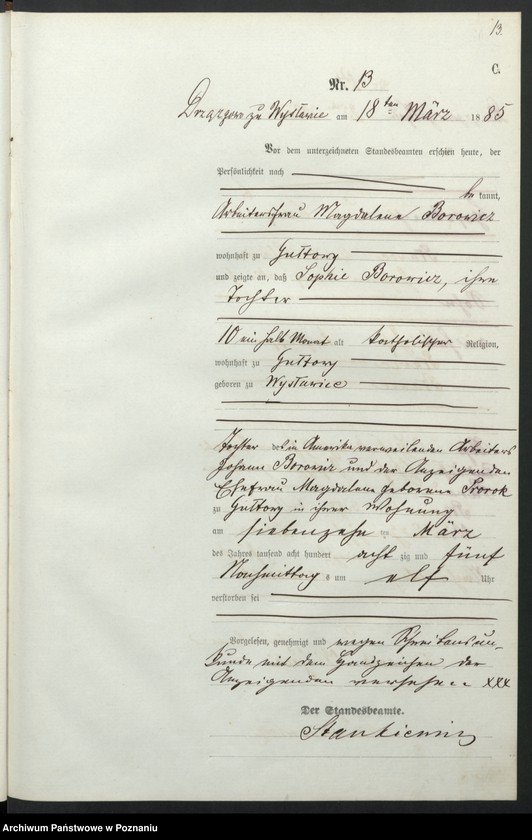 13.
C.
Nr. 13
zu Wysławice am 18ten März 1885
Vor dem unterzeichneten Standesbeamten erschien heute, der
Persönlichkeit nach
be kannt,
Arbeitersfrau Magdalene Borowicz
wohnhaft zu Guttowy
und zeigte an, daß Sophie Borowicz, ihre
Tochter
10 ein halb Monat alt katholischer Religion,
wohnhaft zu Guttowy
geboren zu Wysławice
Tochter des in Amerika verweilenden Arbeiters
Johann Borowicz und der Anzeigenden
Ehefrau Magdalene geborene Prorok
zu Guttowy in ihrer Wohnung
am siebenzehn ten März
des Jahres tausend acht hundert acht zig und fünf
Nachmittag s um elf Uhr
verstorben sei
Vorgelesen, genehmigt und wegen Schreibensun-
kunde mit dem Handzeichen der
Anzeigenden versehen xxx
Der Standesbeamte.
Stankiewicz
Archiwum Państwowe w Poznaniu